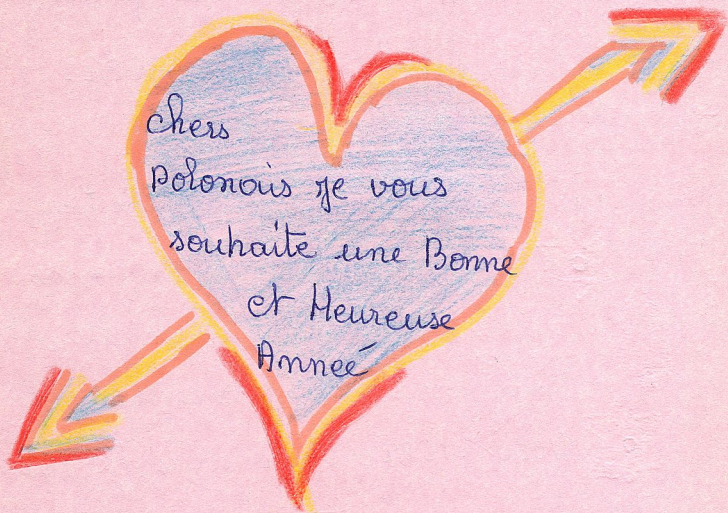 chers
Polonais je vous
souhaite une Bonne
et Heureuse
Anneé